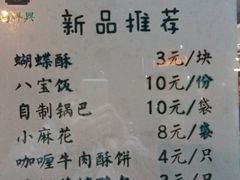 新品推荐
蝴蝶酥 3元/块
八宝饭 10元/份
自制锅巴 10元/袋
小麻花 8元/袋
咖喱牛肉酥饼 4元/只